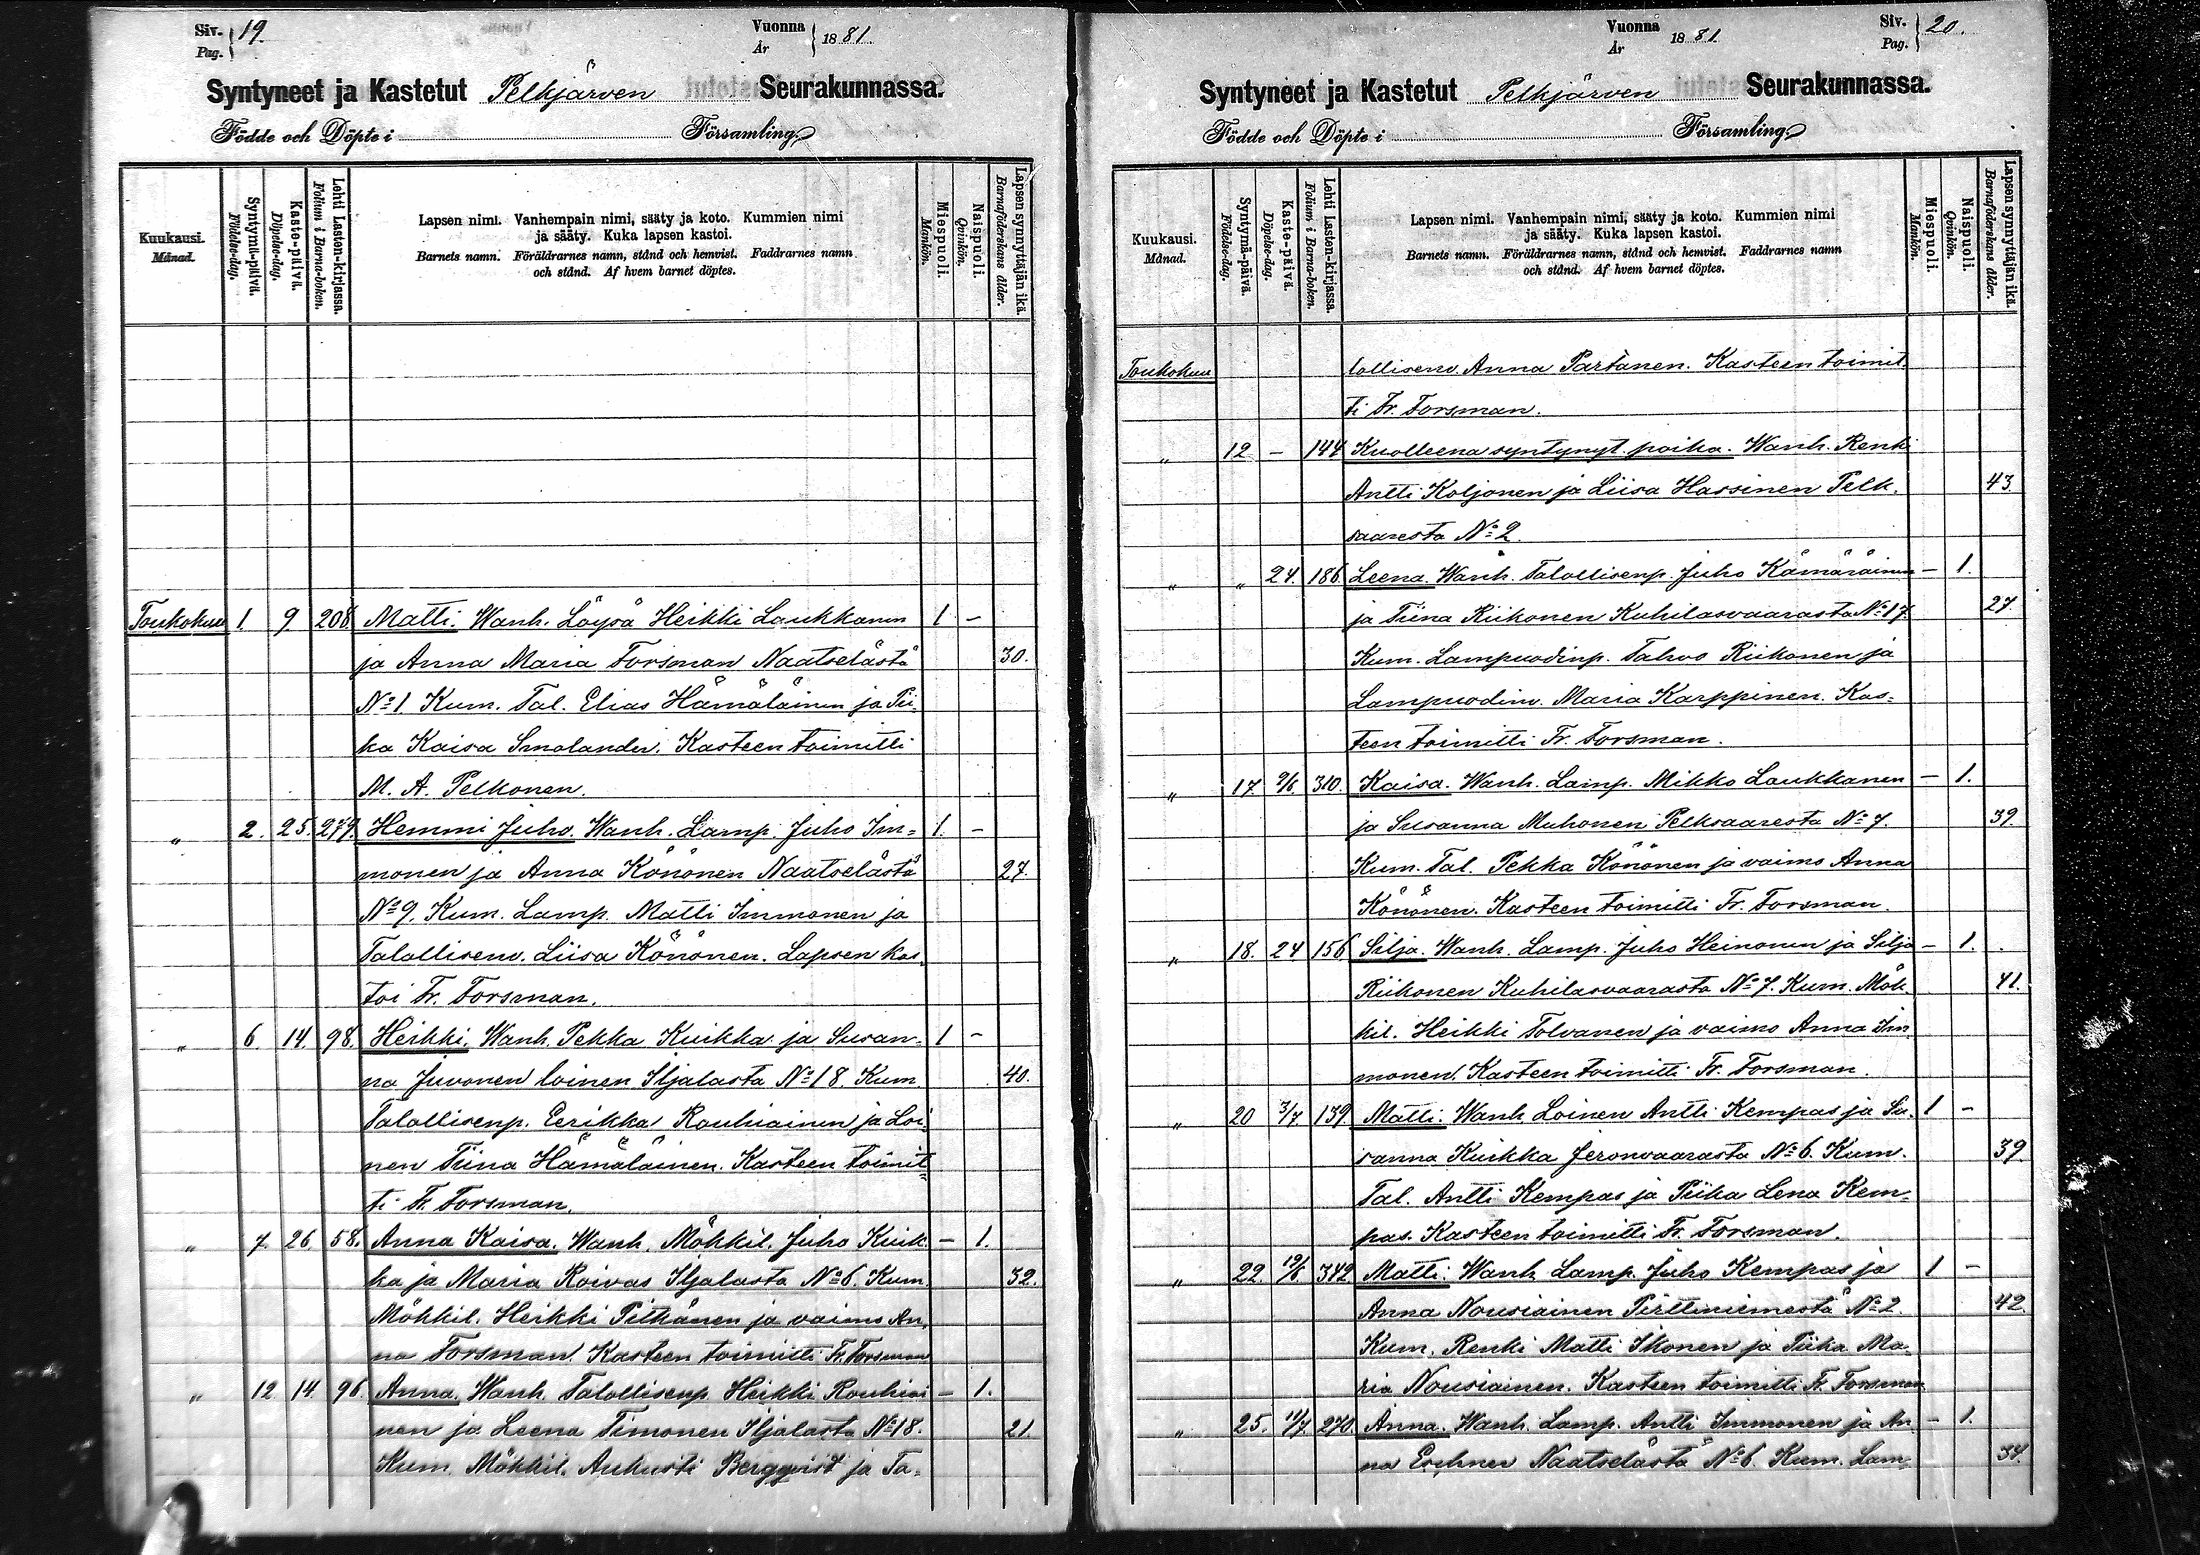 Siv. 19.
Pag.
Vuonna 1881.
År
Syntyneet ja Kastetut Pelkjärven Seurakunnassa.
Födde och Döpte i Församling.
Kuukausi. Månad.
Syntymä-päivä. Födelse-dag.
Kaste-päivä. Döpelse-dag.
Lehti Lasten-kirjassa. Folium i Barna-boken.
Lapsen nimi. Vanhempain nimi, sääty ja koto. Kummien nimi
ja sääty. Kuka lapsen kastoi.
Barnets namn. Föräldrarnes namn, stånd och hemvist. Faddrarnes namn
och stånd. Af hvem barnet döptes.
Miespuoli. Mankön.
Naispuoli. Qvinkön.
Lapsen synnyttäjän ikä. Barnaföderskans ålder.
Toukokuu 1. 9. 208. Matti. Wanh. Löysä Heikki Laukkanen 1 -
ja Anna Maria Forsman Naatselästä 30.
No 1. Kum. Tal. Elias Hämäläinen ja Pii-
ka Kaisa Smolander. Kasteen toimitti
M. A. Pelkonen.
" 2. 25. 279. Hemmi Juho. Wanh. Lamp. Juho Im= 1. -
monen ja Anna Könönen Naatselästä 27.
No 9. Kum. Lamp. Matti Immonen ja
Talollisenv. Liisa Könönen. Lapsen kas-
toi Fr. Forsman.
" 6. 14. 98. Heikki. Wanh. Pekka Kuikka ja Susan- 1 -
na Juvonen loinen Iljalasta No 18. Kum 40.
Talollisenp. Eerikka Rouhiainen ja Loi-
nen Tiina Hämäläinen. Kasteen toimit
ti Fr. Forsman.
" 7. 26. 58. Anna Kaisa. Wanh. Mökkil. Juho Kuik- - 1.
ka ja Maria Koivas Iljalasta No 6. Kum. 32.
Mökkil. Heikki Pitkänen ja vaimo An-
na Forsman. Kasteen toimitti Fr. Forsman
" 12 14. 96. Anna. Wanh. Talollisenp. Heikki Rouhiai - 1.
nen ja Leena Timonen Iljalasta No 18. 21.
Kum. Mökkil. Aukusti Bergqvist ja Ta-
Vuonna 1881.
År
Siv. 20.
Pag.
Syntyneet ja Kastetut Pelkjärven Seurakunnassa.
Födde och Döpte i Församling.
Kuukausi. Månad.
Syntymä-päivä. Födelse-dag.
Kaste-päivä. Döpelse-dag.
Lehti Lasten-kirjassa. Folium i Barna-boken.
Lapsen nimi. Vanhempain nimi, sääty ja koto. Kummien nimi
ja sääty. Kuka lapsen kastoi.
Barnets namn. Föräldrarnes namn, stånd och hemvist. Faddrarnes namn
och stånd. Af hvem barnet döptes.
Miespuoli. Mankön.
Naispuoli. Qvinkön.
Lapsen synnyttäjän ikä. Barnaföderskans ålder.
Toukokuu lollisenv. Anna Partanen. Kasteen toimit
ti Fr. Forsman.
" 12 - 144 Kuolleena syntynyt poika. Wanh. Renki
Antti Koljonen ja Liisa Hassinen Pelk- 43.
saaresta No 2.
" " 24. 186. Leena. Wanh. Talollisenp. Juho Kämäräinen - 1.
ja Tiina Riikonen Kuhilasvaarasta No 17. 27.
Kum. Lampuodinp. Tahvo Riikonen ja
Lampuodinv. Maria Karppinen. Kas-
teen toimitti Fr. Forsman.
" 17. 9/6. 310. Kaisa. Wanh. Lamp. Mikko Laukkanen - 1.
ja Susanna Muhonen Pelksaaresta No 7. 39.
Kum. Tal. Pekka Könönen ja vaimo Anna
Könönen. Kasteen toimitti Fr. Forsman.
" 18. 24 156 Silja. Wanh. Lamp. Juho Heinonen ja Silja - 1.
Riikonen Kuhilasvaarasta No 7. Kum. Mök- 41.
kil. Heikki Tolvanen ja vaimo Anna Im-
monen. Kasteen toimitti Fr. Forsman.
" 20 3/7. 139. Matti. Wanh. Loinen Antti Kempas ja Su- 1 -
sanna Kuikka Jeronvaarasta No 6. Kum. 39.
Tal. Antti Kempas ja Piika Lena Kem-
pas. Kasteen toimitti Fr. Forsman.
" 22. 19/6 342 Matti. Wanh. Lamp. Juho Kempas ja 1 -
Anna Nousiainen Pirttiniemestä No 2. 42.
Kum. Renki Matti Ikonen ja Piika Ma-
ria Nousiainen. Kasteen toimitti Fr. Forsman
" 25. 11/7. 270. Anna. Wanh. Lamp. Antti Immonen ja An- - 1.
na Naatselästä No 6. Kum. Lam- 34.